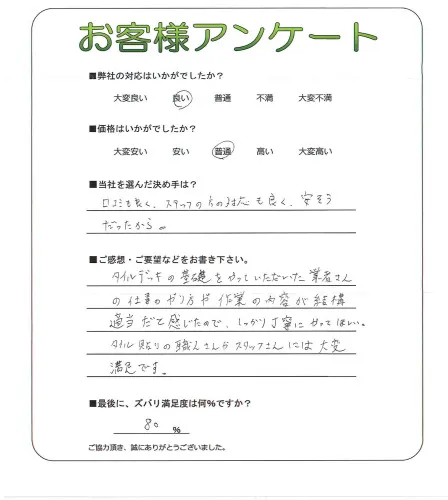 お客様アンケート
■弊社の対応はいかがでしたか？
大変良い 良い 普通 不満 大変不満
■価格はいかがでしたか？
大変安い 安い 普通 高い 大変高い
■当社を選んだ決め手は？
口コミも良く、スタッフの方の対応も良く、安そう
だったから。
■ご感想・ご要望などをお書き下さい。
タイルデッキの基礎をやっていただいた業者さん
の仕事のやり方や作業の内容が結構
適当だと感じたので、しっかり丁寧にやってほしい。
タイル貼りの職人さんやスタッフさんには大変
満足です。
■最後に、ズバリ満足度は何%ですか？
80 %
ご協力頂き、誠にありがとうございました。